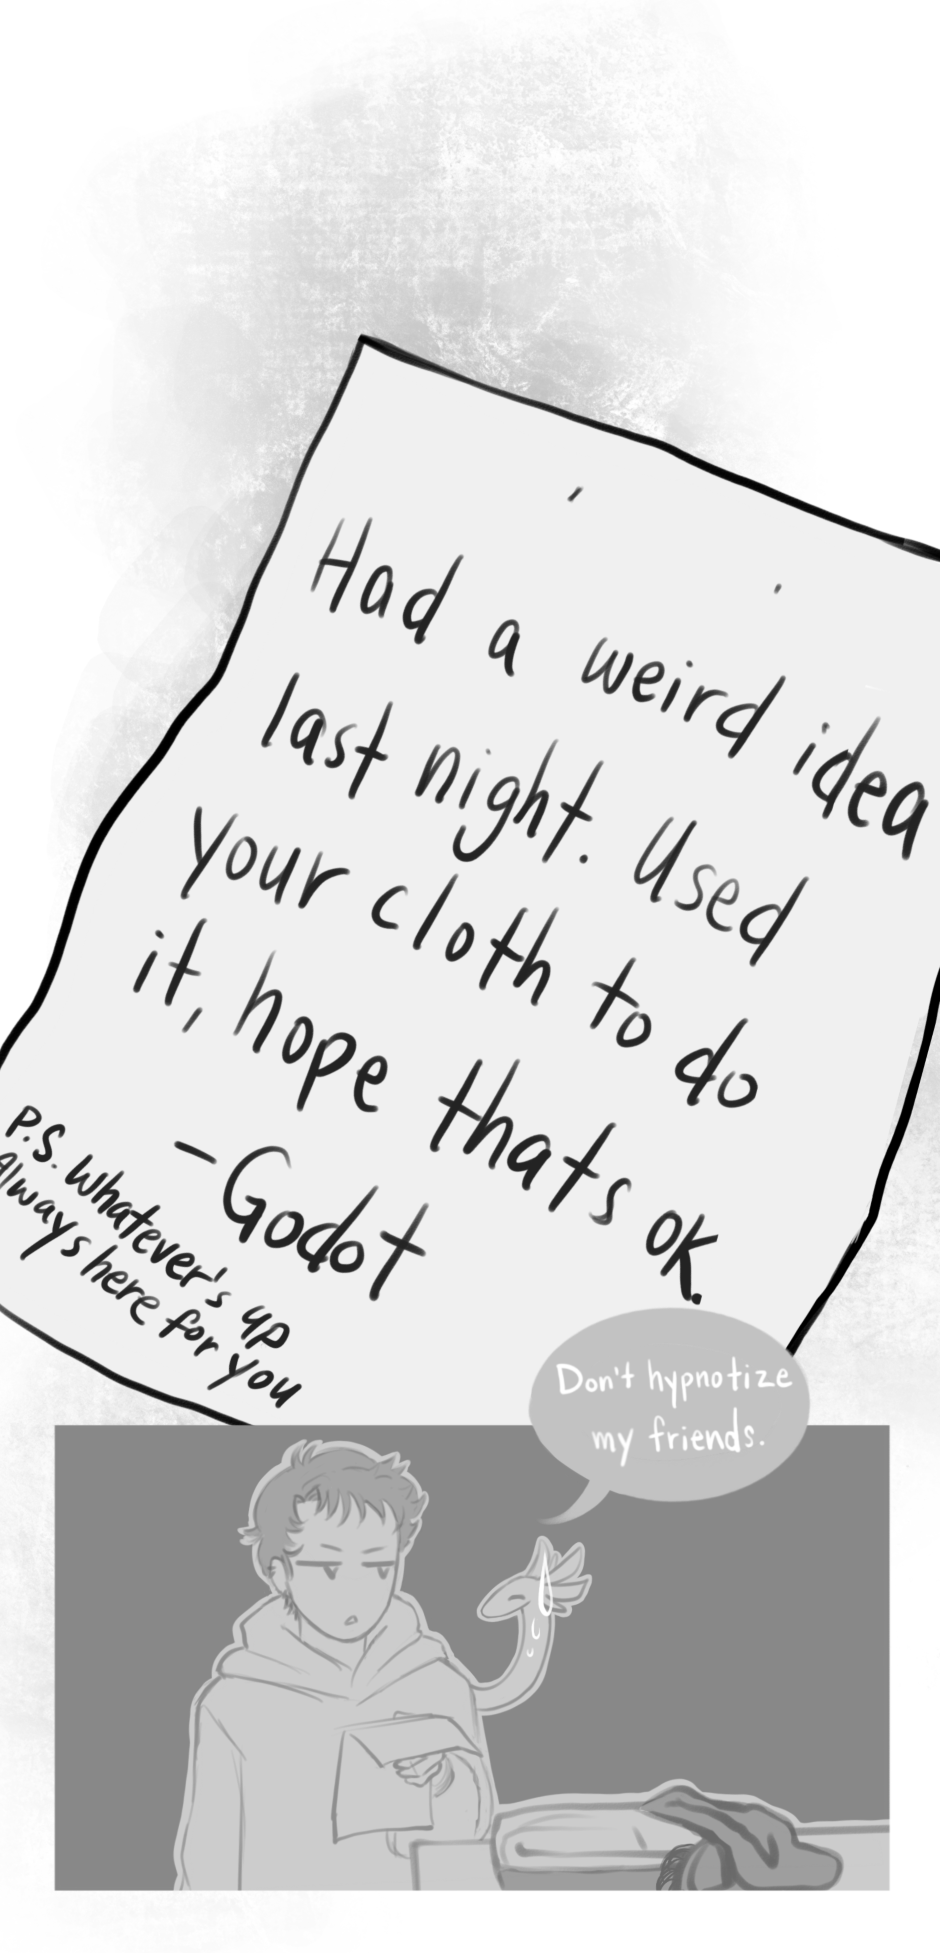 Had a weird idea
last night. Used
your cloth to do
it, hope thats ok.
-Godot
P.S. Whatever's up
Always here for you
Don't hypnotize
my friends.